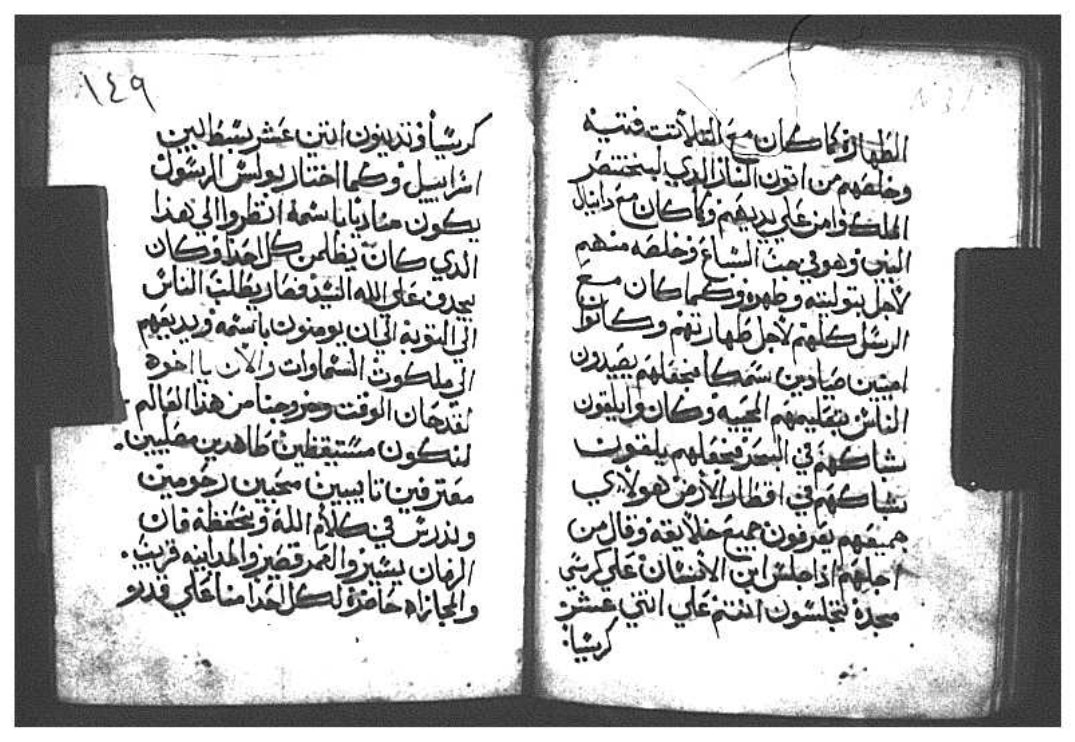 الطهارة كما كان مع الثلاتت فتيه
وخلصهم من اتون النار الذي لبختنصر
الملك وامن علي يديهم وكما كان مع دانيال
النبي وهو في جب السباع وخلصه منهم
لاجل بتوليته وطهره وكما كان مع
الرسل كلهم لاجل طهارتهم وكانوا
اميين صيادين سمكا فجعلهم يصيدون
الناس بتعليمهم المحييه وكانوا يلقون
شباكهم في البحر فجعلهم يلقون
شباكهم في اقطار الأرض هولاي
جميعهم يعرفون جميع خلايقه وقال من
اجلهم اذا جلس ابن الأنسان علي كرسي
مجده تجلسون انتم علي اتني عشر
كرسيا
١٤٩
كرسيا وتدينون اتني عشر سبطا لبني
اسراييل وكما اختار بولس الرسول
يكون مناديا باسمه انظروا الي هذا
الدي كان يظلم من كل احد وكان
يجدف علي الله السيد فصار يطلب الناس
الي التوبه الي ان يومنون باسمه ويديعهم
الي ملكوت السماوات والأن يا اخوه
لقد حان الوقت وخروجنا من هذا العالم
لنكون مستيقظين طاهرين مصليين.
معترفين تايبين محبين رحومين
وندرس في كلام الله ونحفظه فان
الزمان يسير والعمر قصير والمداينه قريب.
والمجازاه حاضرة لكل احدا منا علي قدر